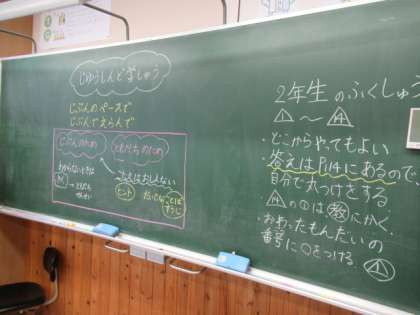 じゆうしんど学しゅう
じぶんのペースで
じぶんでえらんで
じぶんのため
ともだちのため
わからないときは
こたえはおしえない
ヒント
2年生のふくしゅう
△1～△4
・どこからやってもよい
・答えはP14にあるので、
自分で丸つけをする
△4の①は教にかく。
・おわったもんだいの
番号に○をつける。
△1